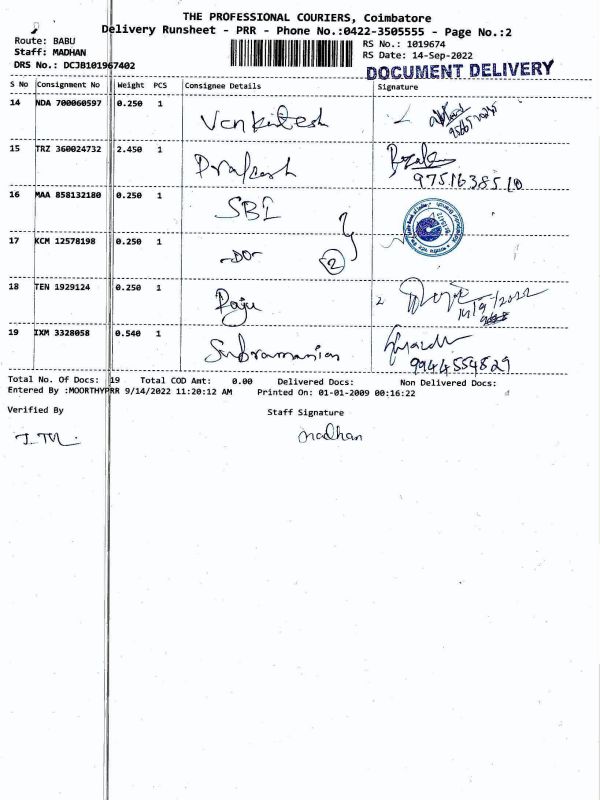 THE PROFESSIONAL COURIERS, Coimbatore
Delivery Runsheet - PRR - Phone No.:0422-3505555 - Page No.:2
Route: BABU
RS No.: 1019674
Staff: MADHAN
RS Date: 14-Sep-2022
DRS No.: DCJB101967402
DOCUMENT DELIVERY
S No Consignment No Weight PCS Consignee Details Signature
14 NDA 700060597 0.250 1 Venkitesh
15 TRZ 360024732 2.450 1 Prakash
9751638510
16 MAA 858132180 0.250 1 SBI
17 KCM 12578198 0.250 1 -DO- 2
18 TEN 1929124 0.250 1 Raju
14/9/2022
19 IXM 3328058 0.540 1 Subramanian
9944559829
Total No. Of Docs: 19 Total COD Amt: 0.00 Delivered Docs: Non Delivered Docs:
Entered By :MOORTHYPRR 9/14/2022 11:20:12 AM Printed On: 01-01-2009 00:16:22
Verified By Staff Signature
madhan